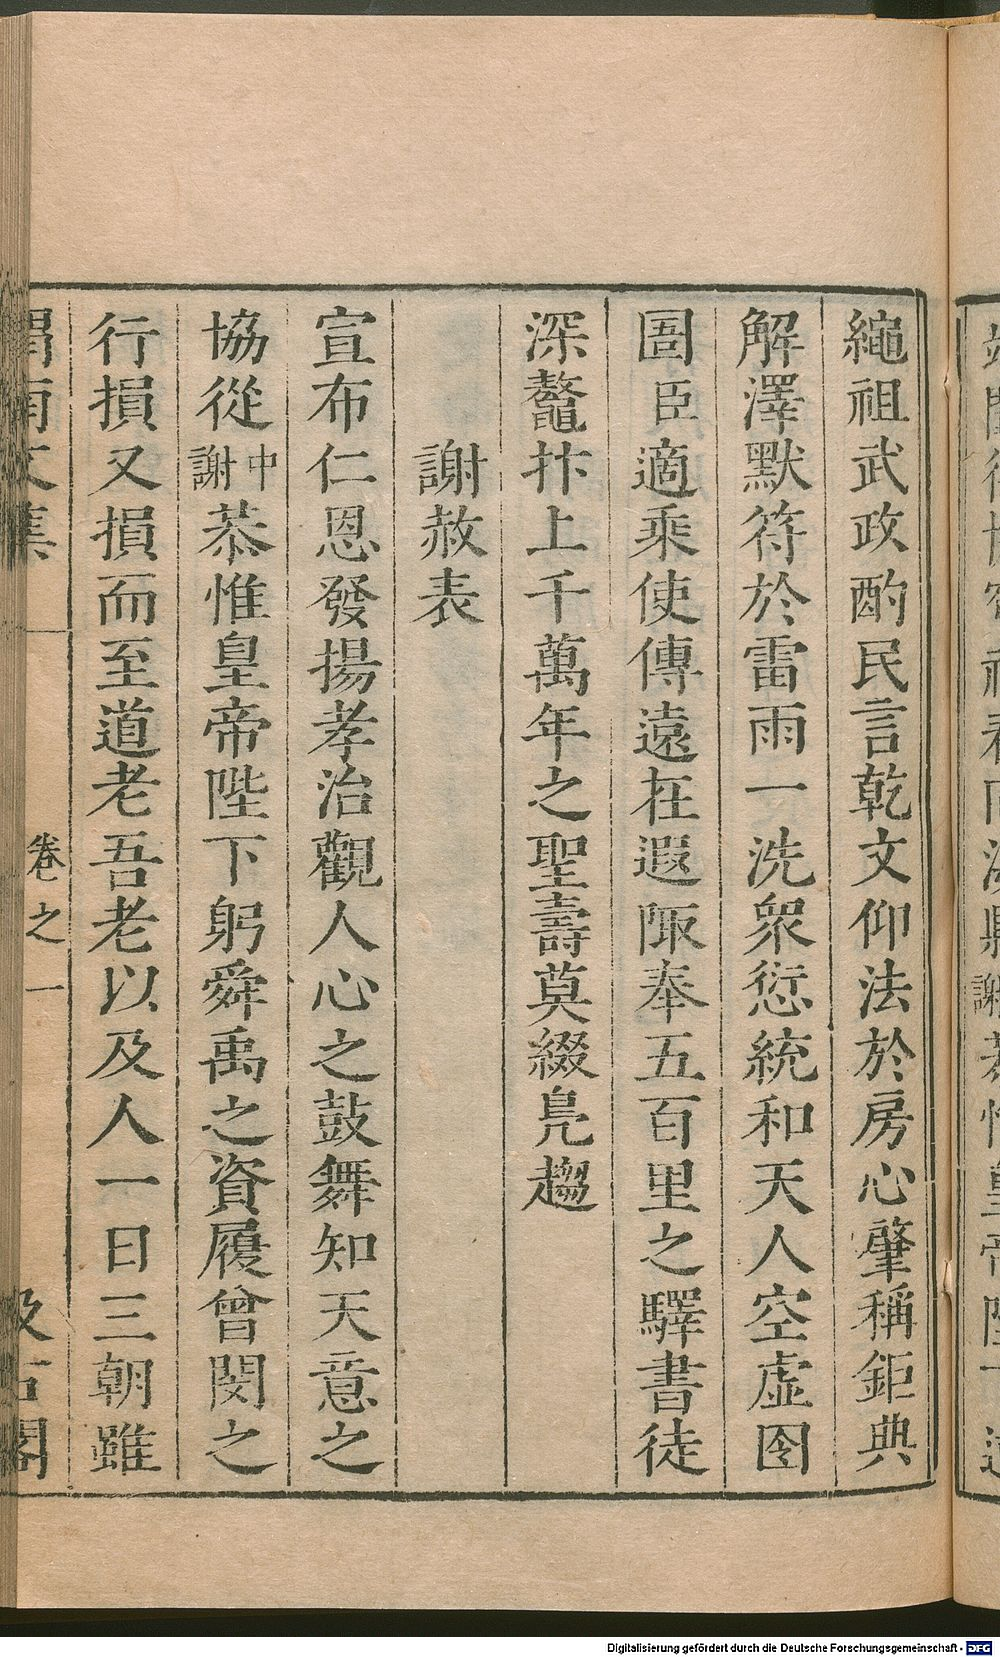 繩祖武政酌民言乾文仰法於房心肇稱鉅典
解澤默符於雷雨一洗衆愆統和天人空虛囹
圄臣適乘使傳遠在遐陬奉五百里之驛書徒
深鼇抃上千萬年之聖壽莫綴鳧趨
謝赦表
宣布仁恩發揚孝治觀人心之鼓舞知天意之
協從中謝恭惟皇帝陛下躬舜禹之資履曾閔之
行損又損而至道老吾老以及人一日三朝雖
渭南文集 卷之一 汲古閣
Digitalisierung gefördert durch die Deutsche Forschungsgemeinschaft - DFG